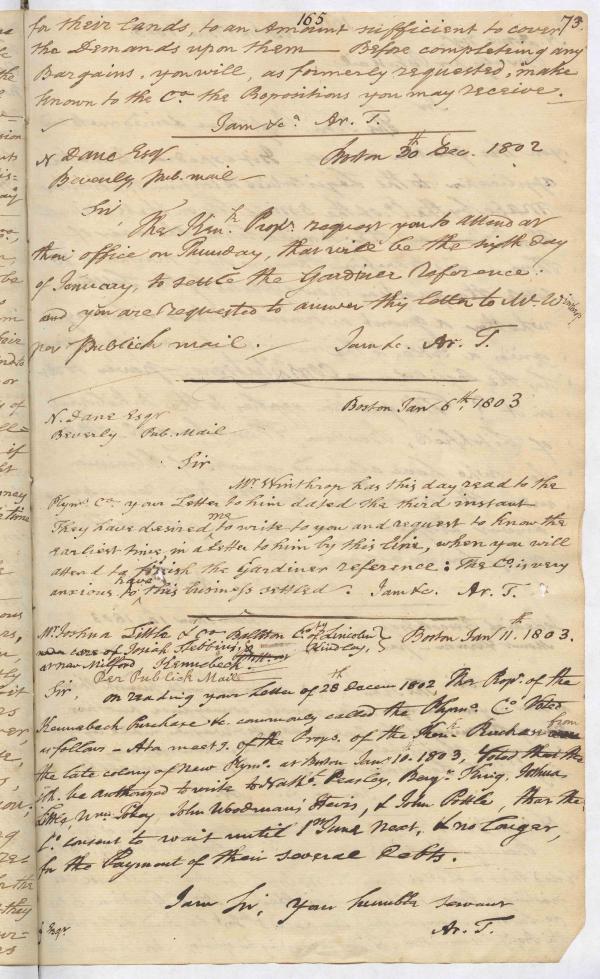 165
73.
for their lands, to an Amount sufficient to cover
the Demands upon them — Before completeing any
Bargains, you will, as formerly requested, make
known to the Co. the Propositions you may receive. —
I am &ca Ar. T.
N. Dane Esqr Boston 30th Dec. 1802
Beverly, pub. mail —
Sir,
The Kenk. Props. request you to attend at
their office on Thursday, that will be the sixth day
of January, to settle the Gardiner Reference:
and you are requested to answer this letter to Mr. Winthrop
per Publick mail. — I am &c. Ar. T.
Boston Jan 6th. 1803
N. Dane Esqr
Beverly Pub. Mail
Sir
Mr. Winthrop has this day read to the
Plymo. Co. your Letter to him dated the third instant
They have desired me to write to you and request to know the
earliest time, in a Letter to him by this line, when you will
attend to finish the Gardiner reference: The Co. is very
anxious to have this business settled. I am &c. Ar. T.
Mr. Joshua Little & Co. Ballton Co. of Lincoln Boston Jan 11th. 1803.
care of Josiah Stebbins,
at new Milford Kennebeck
Per Publick Mail
Sir, on reading your Letter of 28th Decemr 1802 The Props. of the
Kennebeck Purchase &c. commonly called the Plymo. Co. Voted
as follows — At a meetg. of the Props. of the Kenk. Purchase from
the late colony of New Plymo. at Boston Janry 10th. 1803, Voted that the
Clk. be authorized to write to Nathl. Peasley, Benjn. King, Joshua
Little, Wm. John Woodman's Heirs, & John Pottle, that the
Co. consent to wait until 1st June next, & no longer,
for the Payment of their several Debts.
I am Sir, your humble servant
Ar. T.
Esqr